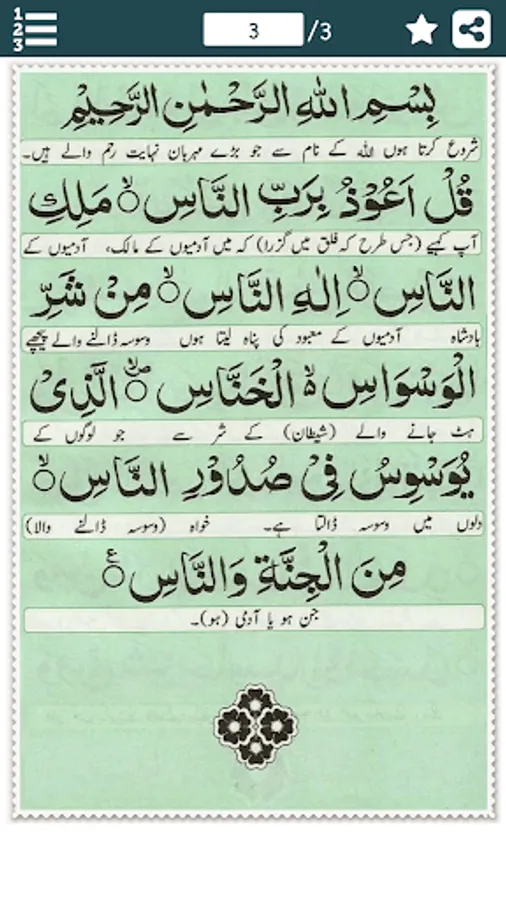 1
2
3
3 /3
بِسْمِ اللهِ الرَّحْمٰنِ الرَّحِيْمِ
شروع کرتا ہوں اللہ کے نام سے جو بڑے مہربان نہایت رحم والے ہیں۔
قُلْ اَعُوْذُ بِرَبِّ النَّاسِ ۙ مَلِكِ
آپ کہیے (جس طرح کہ فلق میں گزرا) کہ میں آدمیوں کے مالک، آدمیوں کے
النَّاسِ ۙ اِلٰهِ النَّاسِ ۙ مِنْ شَرِّ
بادشاہ آدمیوں کے معبود کی پناہ لیتا ہوں وسوسہ ڈالنے والے پیچھے
الْوَسْوَاسِ ۙ الْخَنَّاسِ ۪ۙ الَّذِىْ
ہٹ جانے والے (شیطان) کے شر سے جو لوگوں کے
يُوَسْوِسُ فِىْ صُدُوْرِ النَّاسِ ۙ
دلوں میں وسوسہ ڈالتا ہے۔ خواہ (وسوسہ ڈالنے والا)
مِنَ الْجِنَّةِ وَالنَّاسِ ۧ
جن ہو یا آدمی (ہو)۔